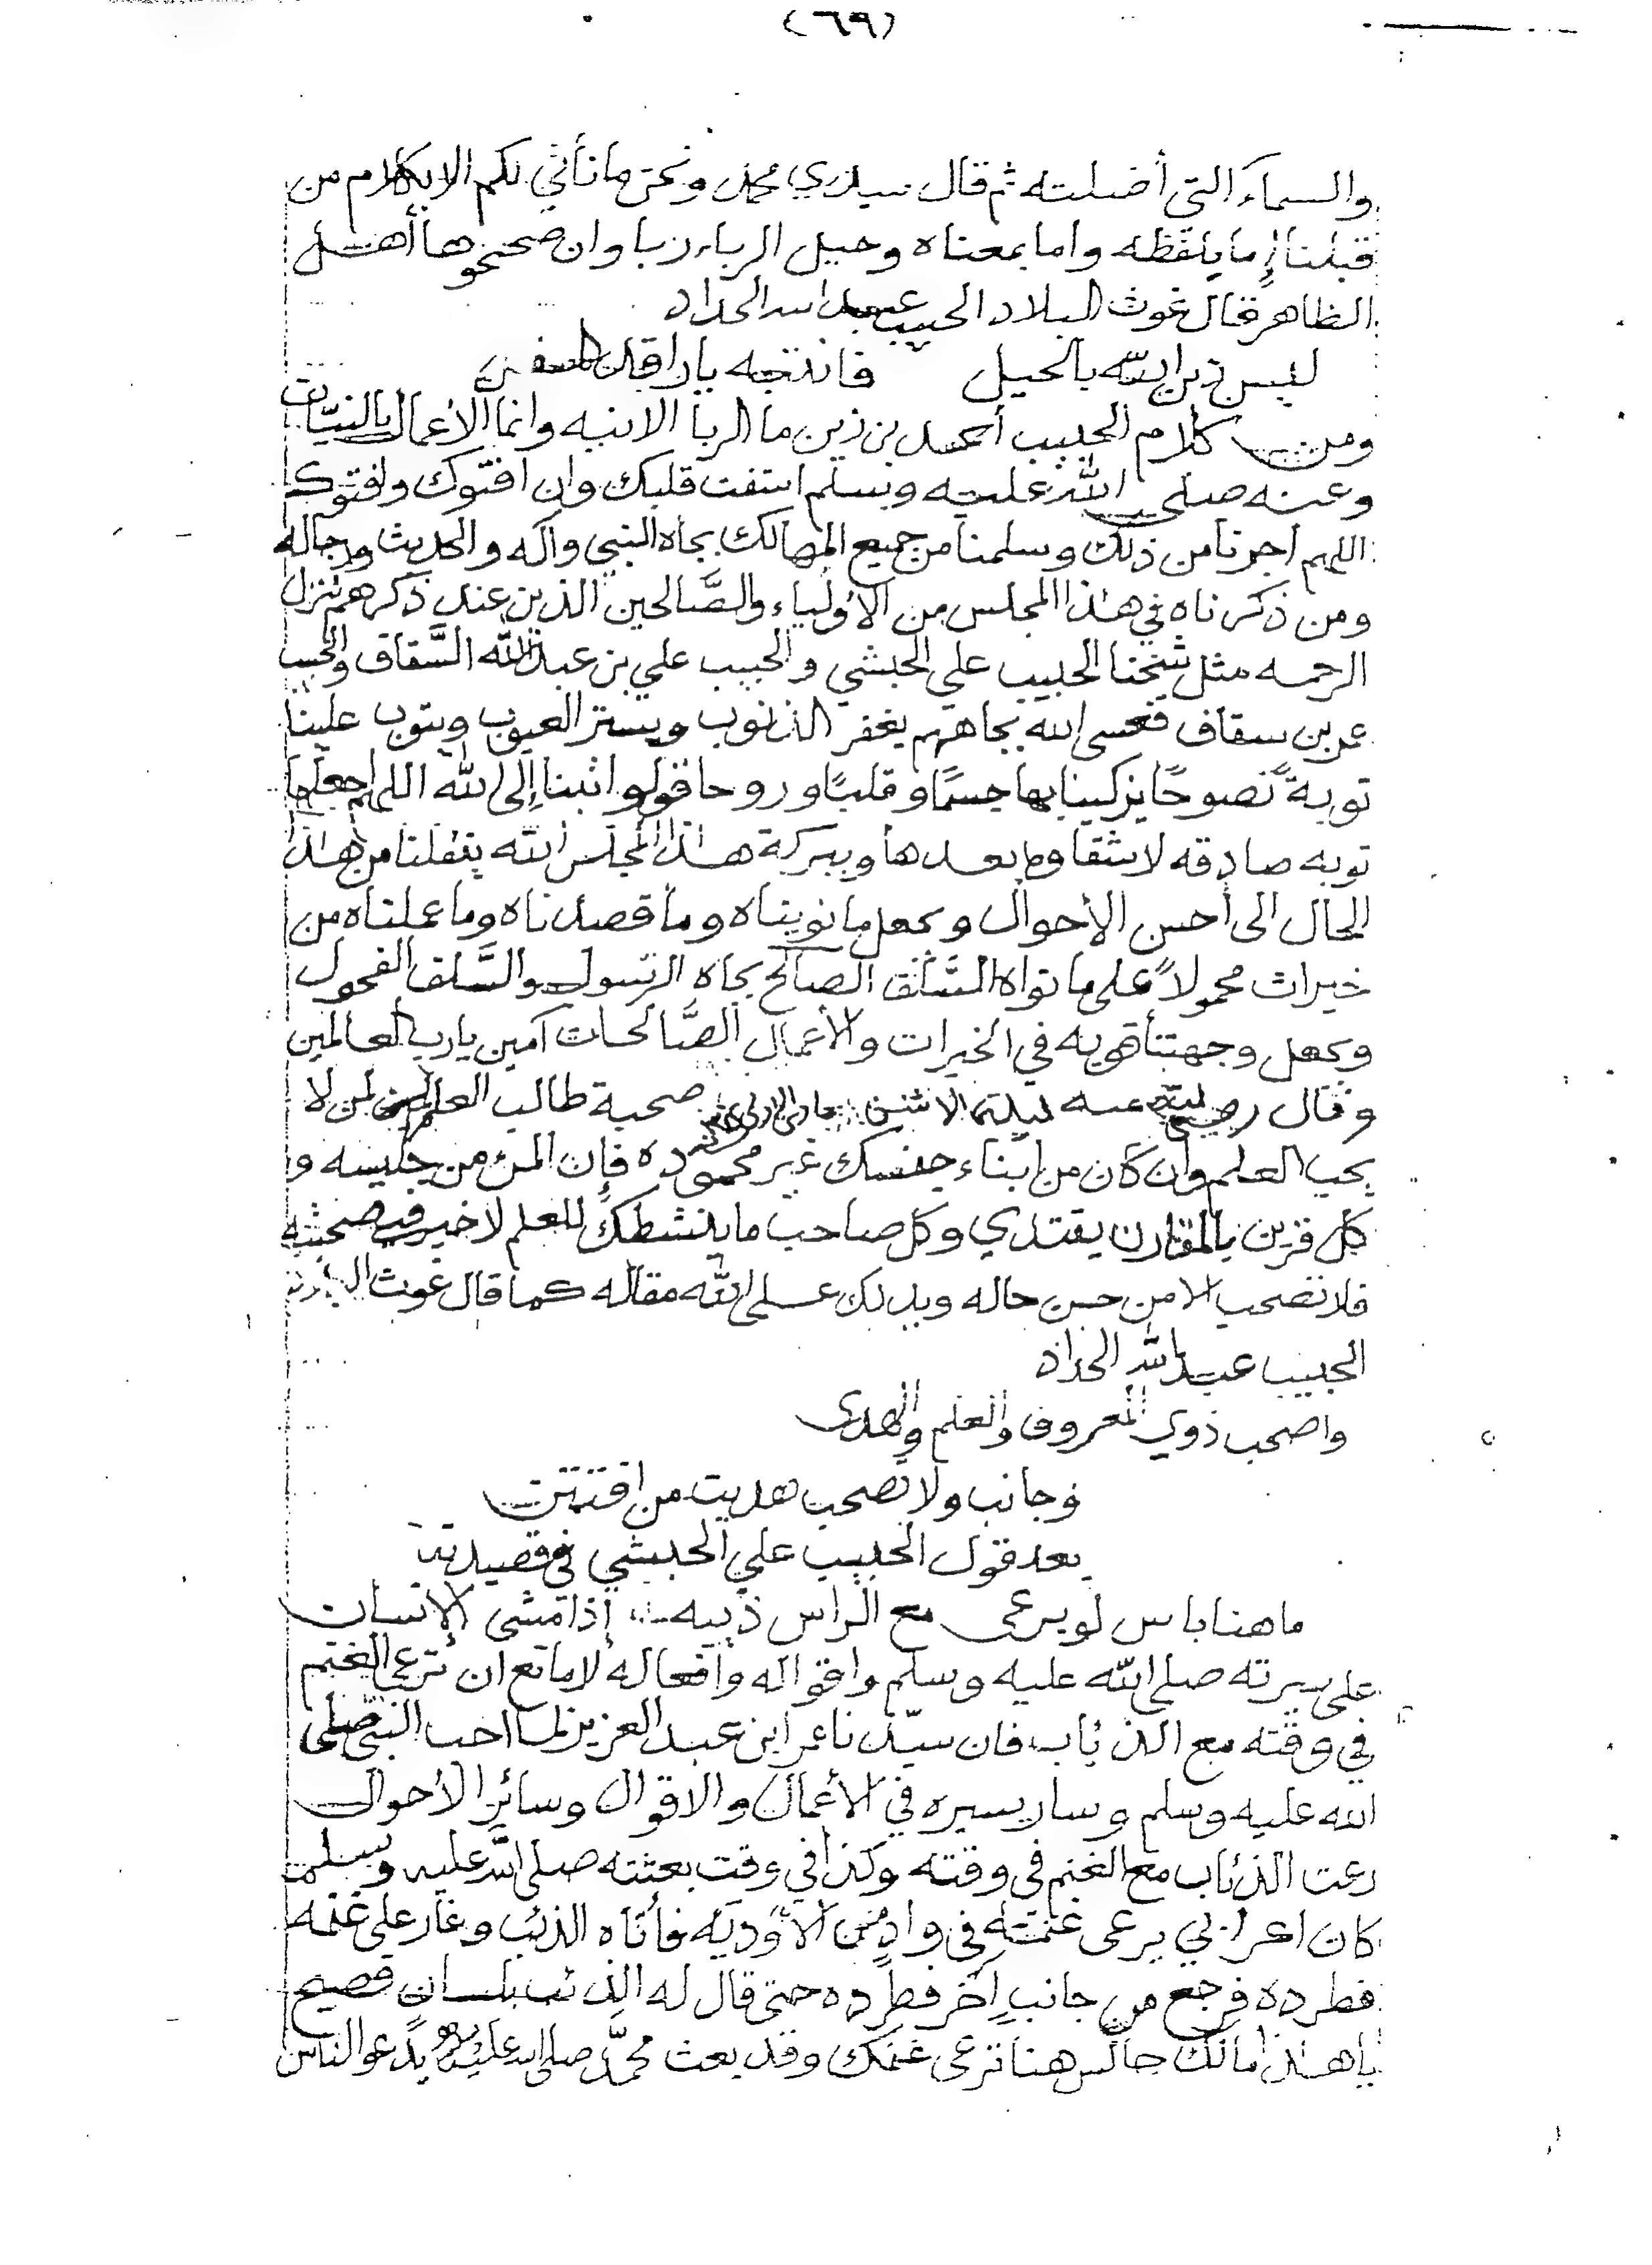 (٦٩)
والسماء التي أضلته ثم قال سيدي محمد ونحن ما نأتي لكم الا بكلام من
قبلنا إما بلفظه واما بمعناه وحيل الرباء ربا وان صححوها أهل
الظاهر قال غوث البلاد الحبيب عبد الله الحداد
ليس دين الله بالحيل فانتبه يا راقد المقل
ومن كلام الحبيب أحمد بن زين ما الربا الا نيه وانما الأعمال بالنيّات
وعنه صلى الله عليه وسلم استفت قلبك وان افتوك وافتوك
اللهم اجرنا من ذلك وسلمنا من جميع المهالك بجاه النبي وآله والحديث ورجاله
ومن ذكرناه في هذا المجلس من الأولياء والصَّالحين الذين عند ذكرهم تنزل
الرحمه مثل شيخنا الحبيب علي الحبشي والحبيب علي بن عبد الله السَّقاف والحبيب
عمر بن سقاف فعسى الله بجاههم يغفر الذنوب ويستر العيوب ويتوب علينا
توبةً نصوحًا يزكينا بها جسمًا وقلبًا وروحا قولوا تبنا إلى الله اللهم اجعلها
توبه صادقه لا شقاوه بعدها وببركة هذا المجلس الله ينقلنا من هذا
الحال الى أحسن الأحوال ويجعل ما نويناه وما قصدناه وما عملناه من
خيرات محمولاً على ما نواه السَّلف الصالح بجاه الرسول والسَّلف الفحول
ويجعل وجهتنا قويه في الخيرات والأعمال الصَّالحات آمين يا رب العالمين
وقال رضي الله عنه ليلة الاثنين جماد الاولى صحبة طالب العلم لمن لا
يحب العلم وان كان من ابناء جنسك غير محموده فإن المرء من جليسه و
كل قرين بالمقارن يقتدي وكل صاحب ما ينشطك للعلم لا خير في صحبته
فلا تصحب الا من حسن حاله ويدلك على الله مقاله كما قال غوث البلاد
الحبيب عبد الله الحداد
واصحب ذوي المعروف والعلم والهدى
وجانب ولا تصحب هديت من افتتن
بعد قول الحبيب علي الحبشي في قصيدته
ما هنا باس لو يرعى مع الراس ذيبه إذا مشى الانسان
على سيرته صلى الله عليه وسلم واقواله وأفعاله لا مانع ان ترعى الغنم
في وقته مع الذئاب فان سيّدنا عمر ابن عبد العزيز لما احب النبي صلى
الله عليه وسلم وسار بسيره في الأعمال والاقوال وسائر الأحوال
رعت الذئاب مع الغنم في وقته وكذا في وقت بعثته صلى الله عليه وسلم
كان اعرابي يرعى غنمته في وادٍ من الأوديه فأتاه الذئب وغار على غنمه
فطرده فرجع من جانبٍ آخر فطرده حتى قال له الذئب بلسان فصيح
يا هذا مالك جالس هنا ترعى غنمك وقد بعث محمّد صلى الله عليه وسلم يدعو الناس